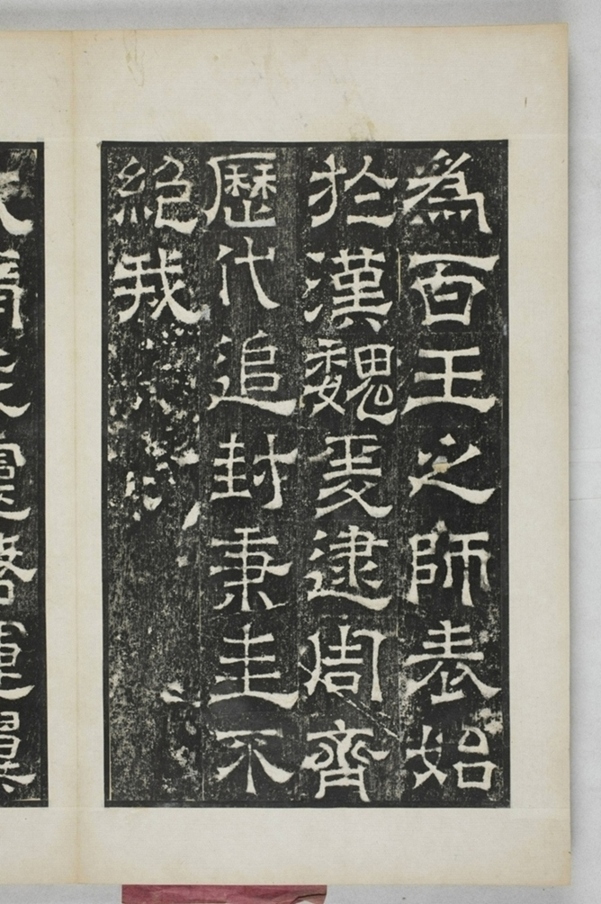 為百王之師表始
於漢魏爰逮周齊
歷代追封秉圭不
絕我